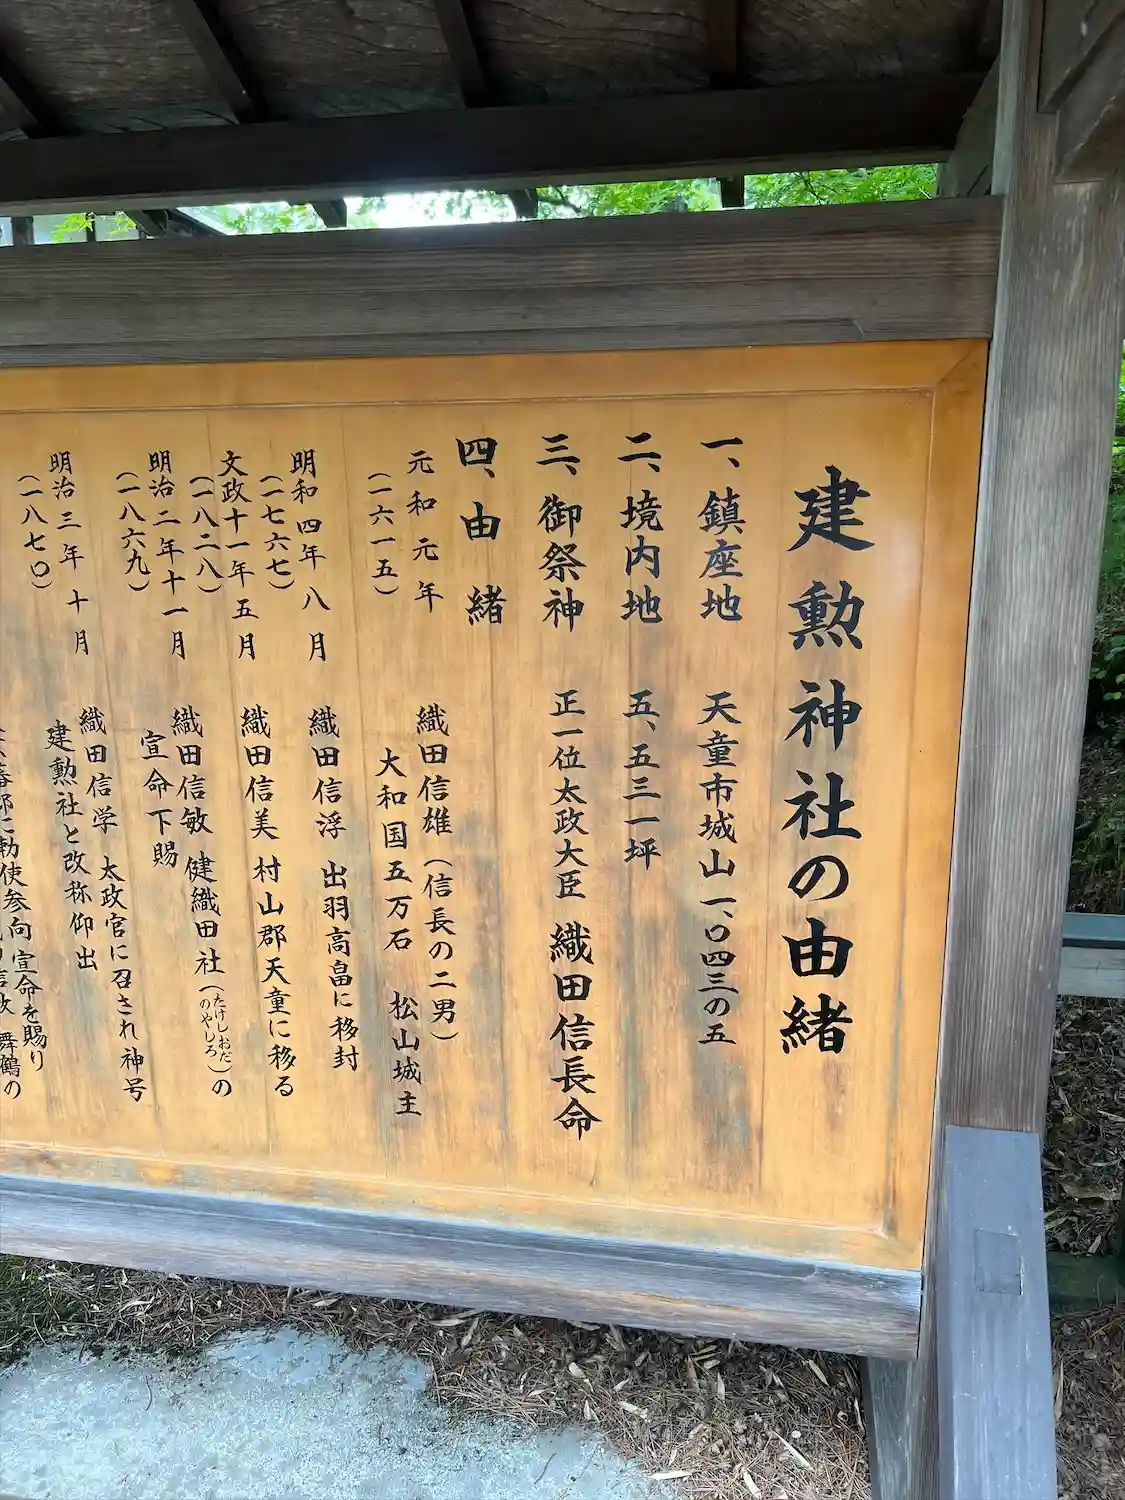 建勲神社の由緒
一、鎮座地 天童市城山一、〇四三の五
二、境内地 五、五三一坪
三、御祭神 正一位太政大臣 織田信長命
四、由緒
元和元年 織田信雄（信長の二男）
（一六一五） 大和国五万石 松山城主
明和四年八月 織田信浮 出羽高畠に移封
（一七六七）
文政十一年五月 織田信美 村山郡天童に移る
（一八二八）
明治二年十一月 織田信敏 健織田社（たけしおだのやしろ）の
（一八六九） 宣命下賜
明治三年十月 織田信学 太政官に召され神号
（一八七〇） 建勲社と改称仰出
勅使参向 宣命を賜り
舞鶴の